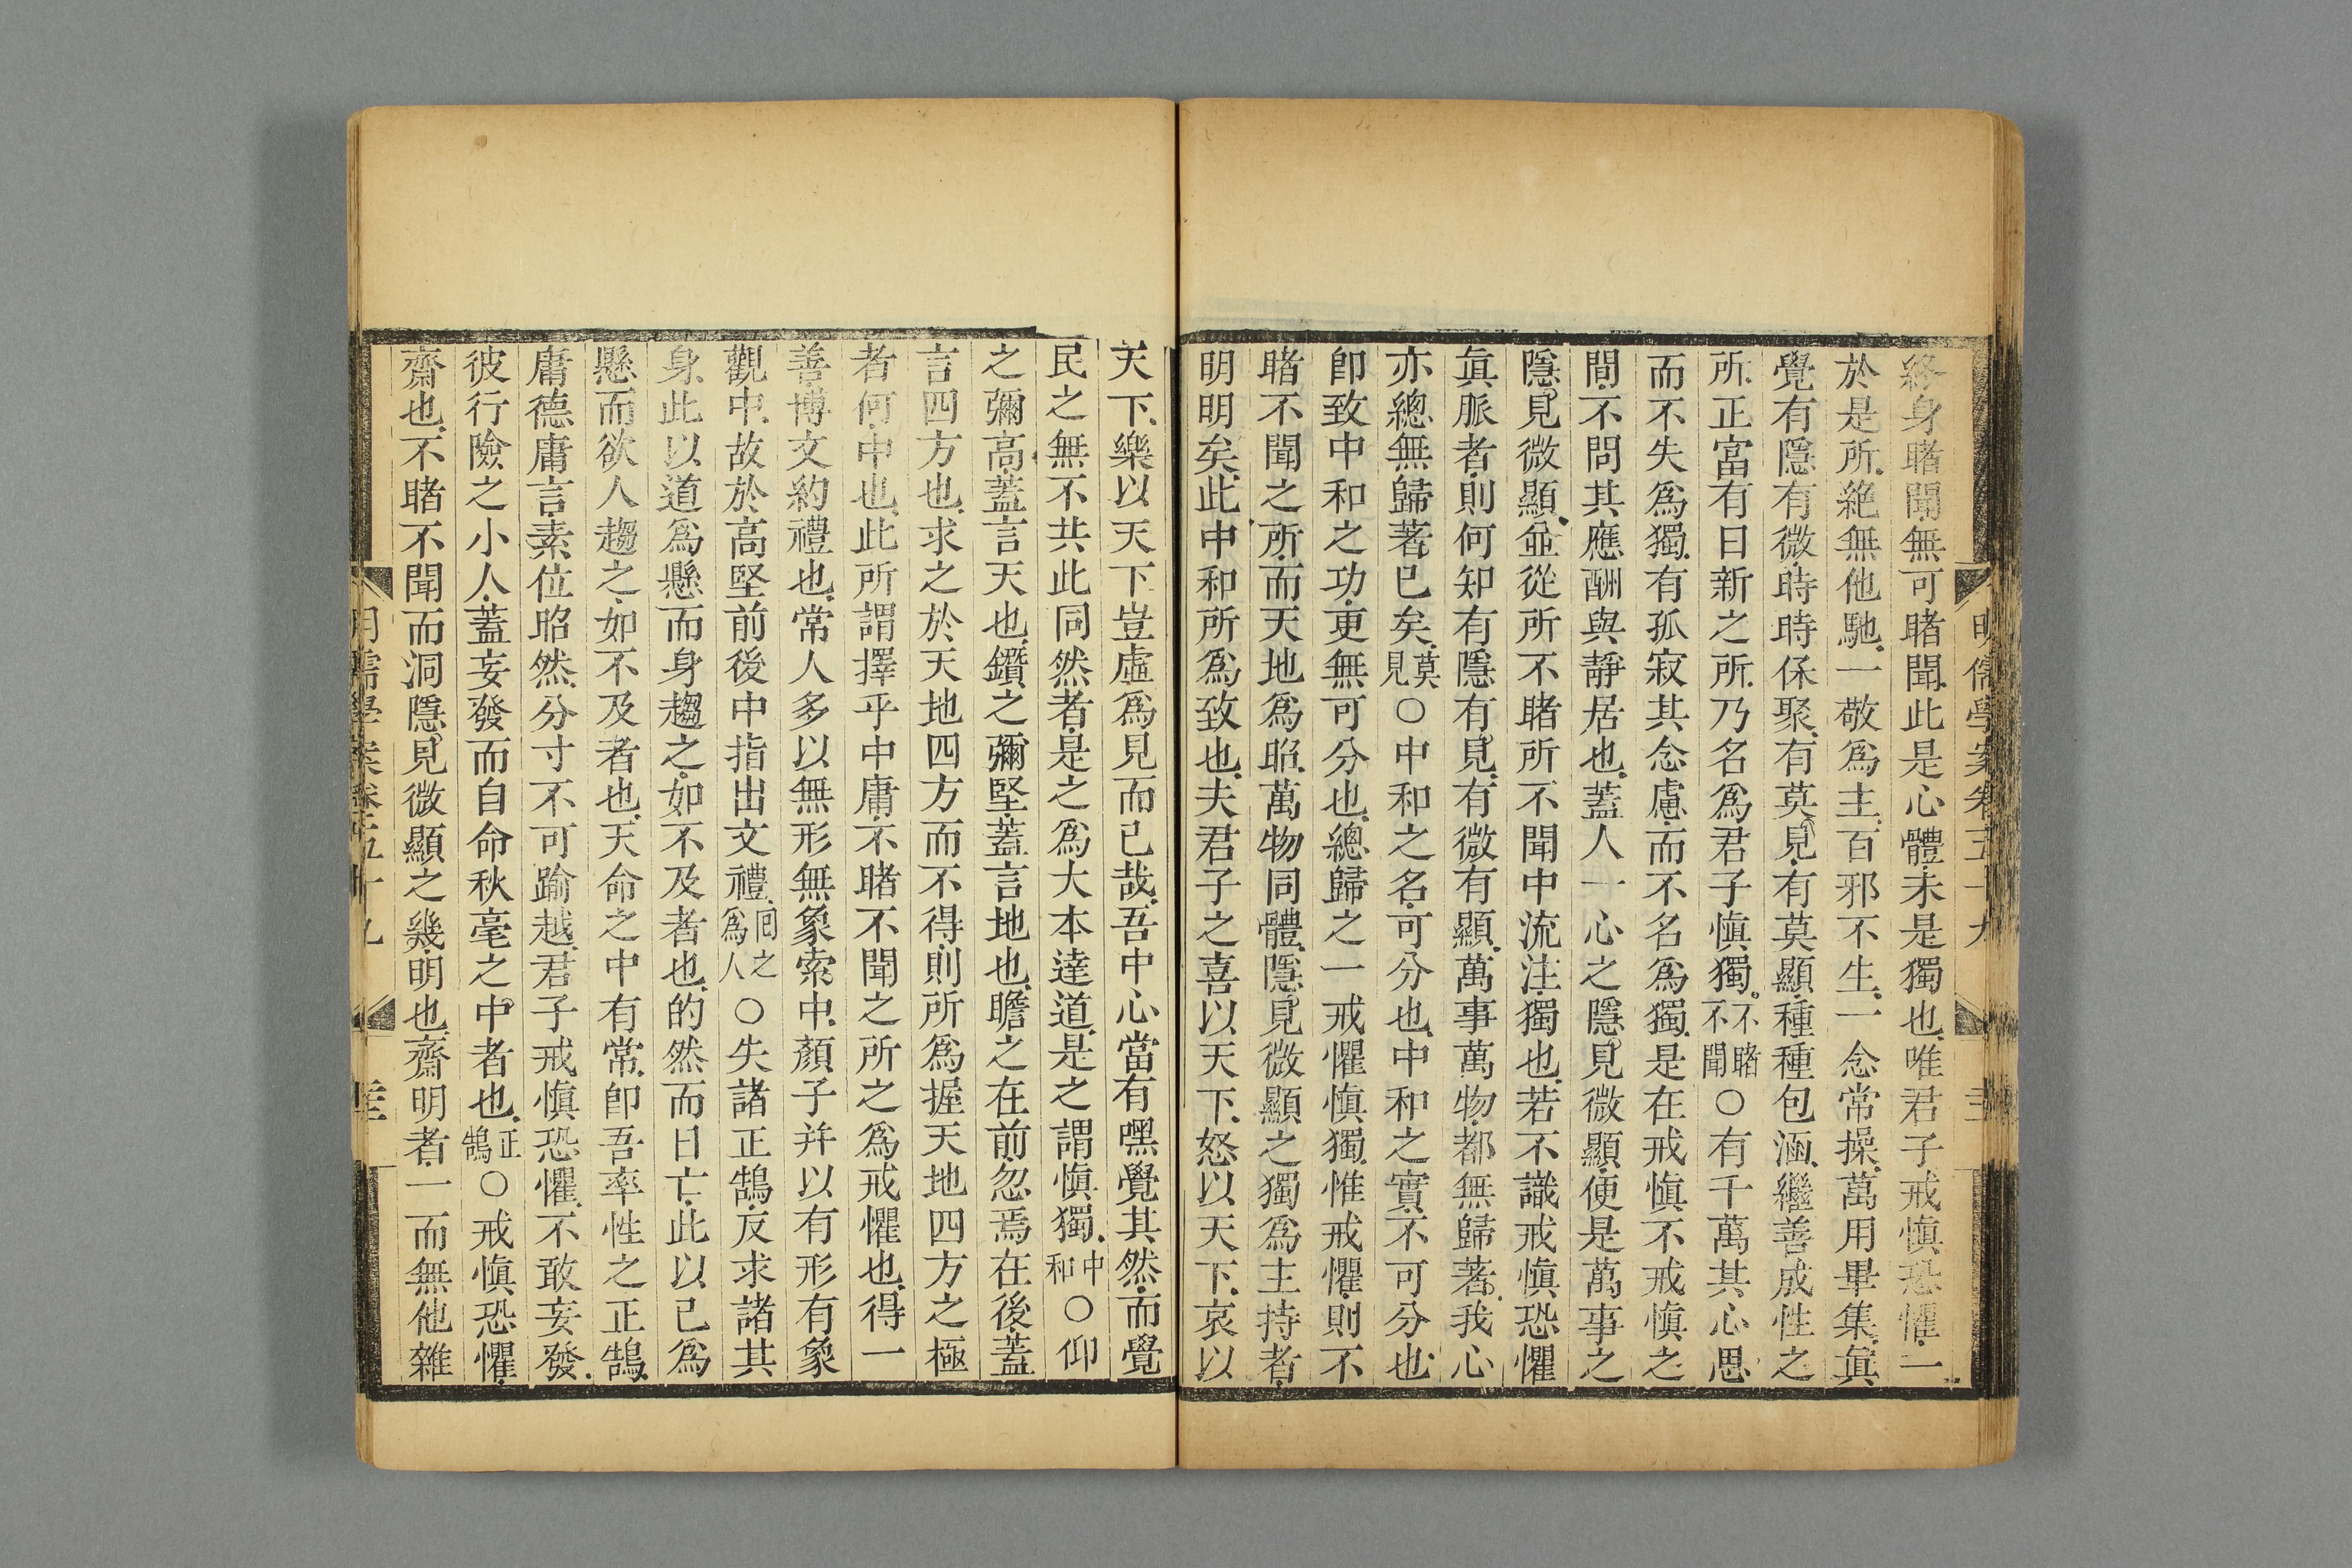 終身睹聞、無可睹聞、此是心體、未是獨也、唯君子戒愼恐懼、一
於是所、絶無他馳、一敬爲主、百邪不生、一念常操、萬用畢集、眞
覺有隱有微、時時保聚、有莫見、有莫顯、種種包涵、繼善成性之
所、正富有日新之所、乃名爲君子愼獨。不睹不聞○有千萬其心思
而不失爲獨、有孤寂其念慮、而不名爲獨、是在戒愼不戒愼之
間、不問其應酬與靜居也、蓋人一心之隱見微顯、便是萬事之
隱見微顯、並從所不睹所不聞中流注、獨也、若不識戒愼恐懼
眞脈者、則何知有隱有見、有微有顯、萬事萬物、都無歸著、我心
亦總無歸著已矣、莫見○中和之名、可分也、中和之實、不可分也
卽致中和之功、更無可分也、總歸之一戒懼愼獨、惟戒懼、則不
睹不聞之所、而天地爲昭、萬物同體、隱見微顯之獨爲主持者、
明明矣、此中和所爲致也、夫君子之喜以天下、怒以天下、哀以
明儒學案卷五十九
天下、樂以天下、豈虛爲見而已哉、吾中心當有嘿覺其然、而覺
民之無不共此同然者、是之爲大本達道、是之謂愼獨、中和○仰
之彌高、蓋言天也、鑽之彌堅、蓋言地也、瞻之在前、忽焉在後、蓋
言四方也、求之於天地四方而不得、則所爲握天地四方之極
者何、中也、此所謂擇乎中庸、不睹不聞之所之爲戒懼也、得一
善、博文約禮也、常人多以無形無象索中、顏子并以有形有象
觀中、故於高堅前後中指出文禮、回之爲人○失諸正鵠、反求諸其
身、此以道爲懸而身趨之、如不及者也、的然而日亡、此以已爲
懸而欲人趨之、如不及者也、天命之中有常、卽吾率性之正鵠、
庸德庸言、素位昭然、分寸不可踰越、君子戒愼恐懼、不敢妄發、
彼行險之小人、蓋妄發而自命秋毫之中者也、正鵠○戒愼恐懼、
齋也、不睹不聞而洞隱見微顯之幾、明也、齋明者、一而無他雜
明儒學案卷五十九